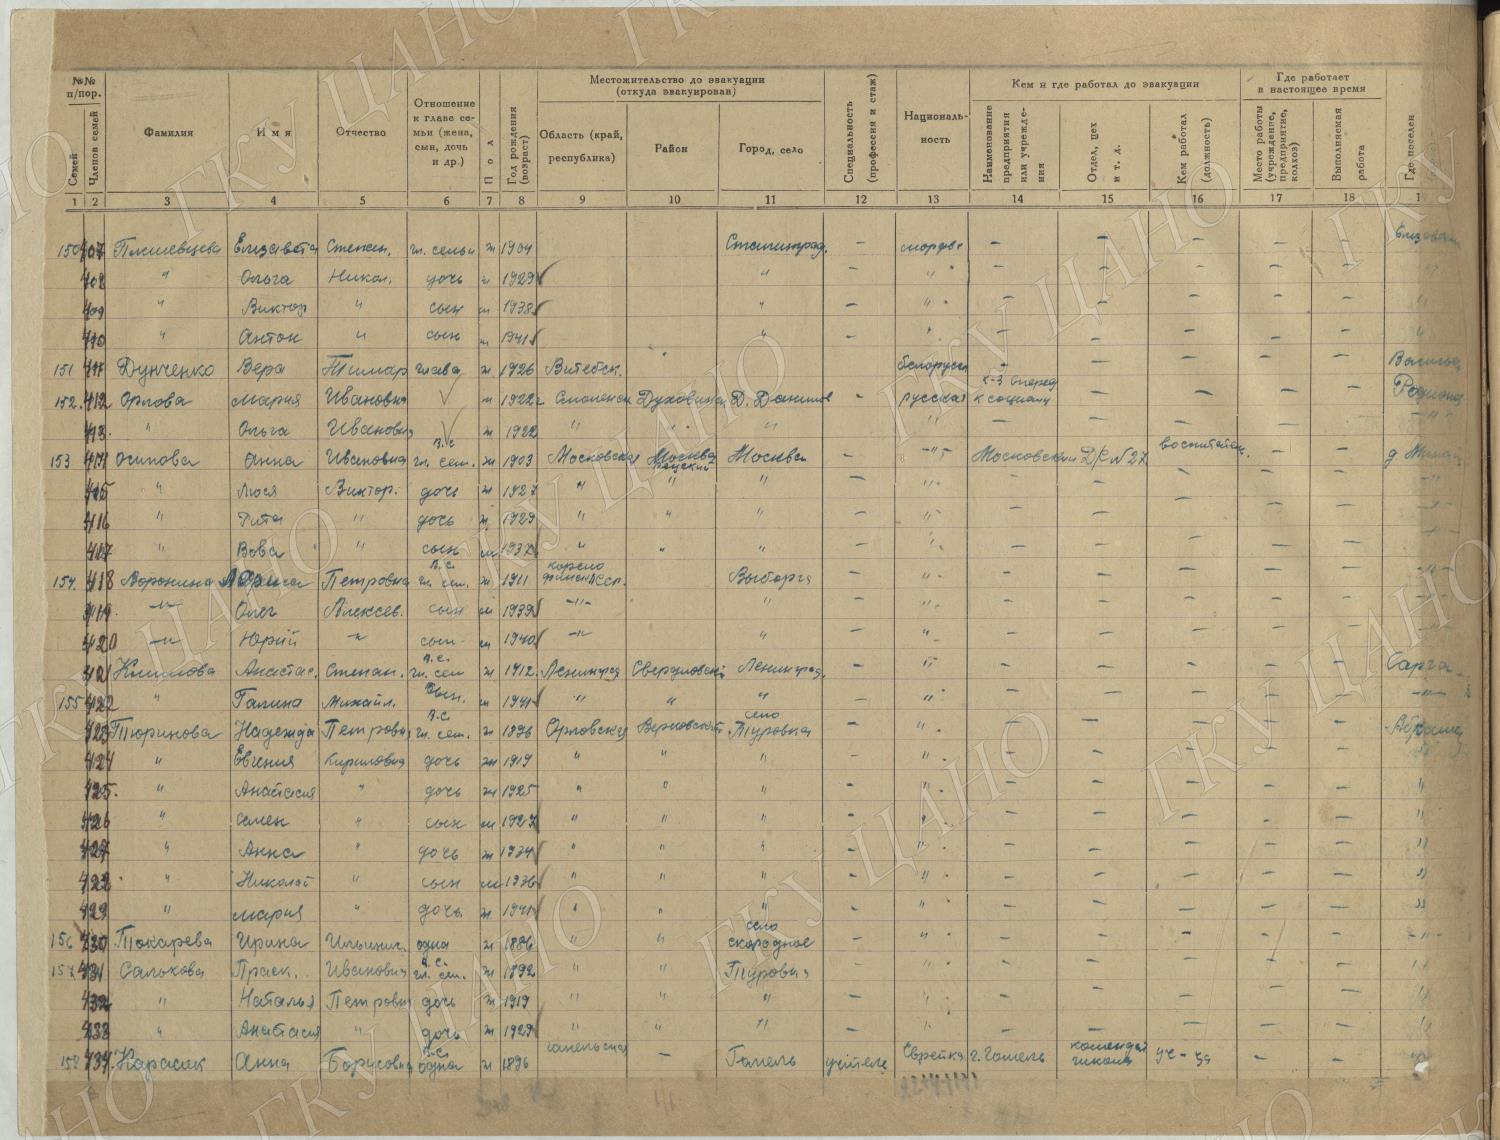 №№ п/пор.
Семей
Членов семей
Фамилия
Имя
Отчество
Отношение к главе семьи (жена, сын, дочь и др.)
Пол
Год рождения (возраст)
Местожительство до эвакуации (откуда эвакуирован)
Область (край, республика)
Район
Город, село
Специальность (профессия и стаж)
Националь-ность
Кем и где работал до эвакуации
Наименование предприятия или учрежде-ния
Отдел, цех и т. д.
Кем работал (должность)
Где работает в настоящее время
Место работы (учреждение, предприятие, колхоз)
Выполняемая работа
Где поселен
1 2 3 4 5 6 7 8 9 10 11 12 13 14 15 16 17 18 1
150 407 Елизавета Степан. гл. семьи ж 1904 Сталинград. — мордва — — — — —
408 " Ольга Никол. дочь ж 1929 " — " — — — — —
409 " Виктор " сын м 1938 " — " — — — — —
410 " Антон " сын м 1941 " — " — — — — —
151 411 Дунченко Вера Тимар глава ж 1926 Витебск. — — — — —
152. 412 Орлова Мария Ивановна ж 1922 Смоленск Духовщин Д. Данилов - русская к-з вперед к социали — — — —
413. " Ольга Ивановна ж 1922 " " " — " — — — — —
153 414 Осипова Анна Ивановна в.с. гл. сем. ж 1903 Московская Москва Москва — " Московский Д/С N 27 воспитател. — —
415 " Люся Виктор. дочь ж 1927 " " " — " — — — — —
416 " Рита " дочь ж 1929 " " " — " — — — — —
417 " Вова " сын м 1937 " " " — " — — — — —
154. 418 Воронина Петровна в.с. гл. сем. ж 1911 карело финск ССР. Выборга — " — — — — —
419. —"— Олег Алексев. сын м 1939 —"— " — " — — — — —
420 —"— Юрий —"— сын м 1940 —"— " — " — — — — —
421 Климова Анастас. Степан. в.с. гл. сем ж 1912 Ленинград Свердловский Ленинград. — " — — — — — Сарга
155 422 " Галина Михайл. 1941 " " " — " — — — — —
423 Тюринова Надежда Петровна в.с. гл. сем. ж 1896 Орловская Верховский село Туровка — " — — — — —
424 " Евгения Кириловна дочь ж 1919 " " " — " — — — — —
425. " Анастасия " дочь ж 1925 " " " — " — — — — —
426 " Семен " сын м 1927 " " " — " — — — — —
427 " Анна " дочь ж 1934 " " " — " — — — — —
428 " Николай " сын м 1936 " " " — " — — — — —
429 " Мария " дочь ж 1941 " " " — " — — — — —
156 430 Токарева Ирина Ильинич. одна ж 1886 " " село скородное — " — — — — —
157 431 Салькова Праск. Ивановна в.с. гл. сем. ж 1892 " " Туровка — " — — — — —
432 " Наталья Петровна дочь ж 1919 " " " — " — — — — —
433 " Анастасия " дочь ж 1929 " " " — " — — — — —
158 434. Карасик Анна Борисовна в.с. одна ж 1896 гомельская — Гомель учитель Еврейка г. Гомель школа уч-ца — —
ГКУ ЦАНО